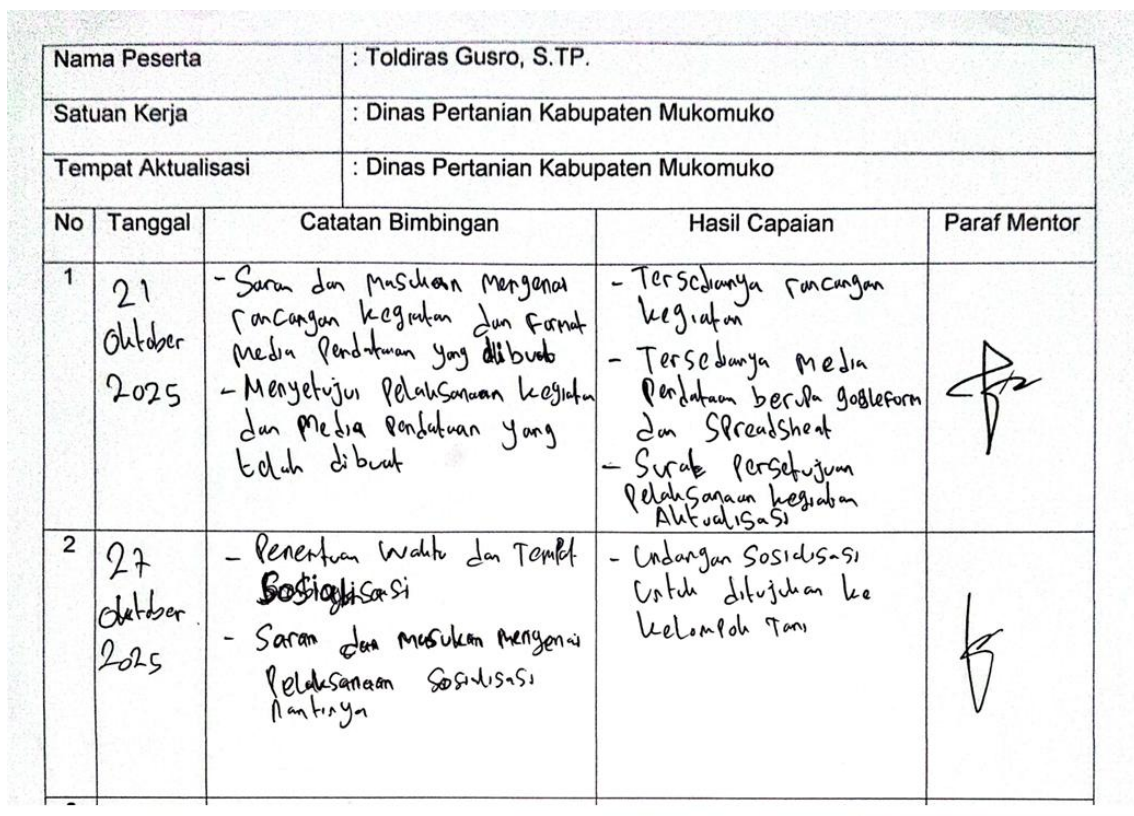 Nama Peserta : Toldiras Gusro, S.TP.
Satuan Kerja : Dinas Pertanian Kabupaten Mukomuko
Tempat Aktualisasi : Dinas Pertanian Kabupaten Mukomuko
No Tanggal Catatan Bimbingan Hasil Capaian Paraf Mentor
1
21
Oktober
2025
- Saran dan Masukan Mengenai
rancangan kegiatan dan format
Media Pendataan yang dibuat
- Menyetujui Pelaksanaan kegiatan
dan Media Pendataan yang
telah dibuat
- Tersedianya rancangan
kegiatan
- Tersedianya Media
Pendataan berupa gogleform
dan Spreadsheet
- Surat Persetujuan
Pelaksanaan kegiatan
Aktualisasi
2
27
Oktober
2025
- Penentuan Waktu dan Tempat
Sosialisasi
- Saran dan masukan Mengenai
Pelaksanaan Sosialisasi
Nantinya
- Undangan Sosialisasi
Untuk ditujukan ke
Kelompok Tani